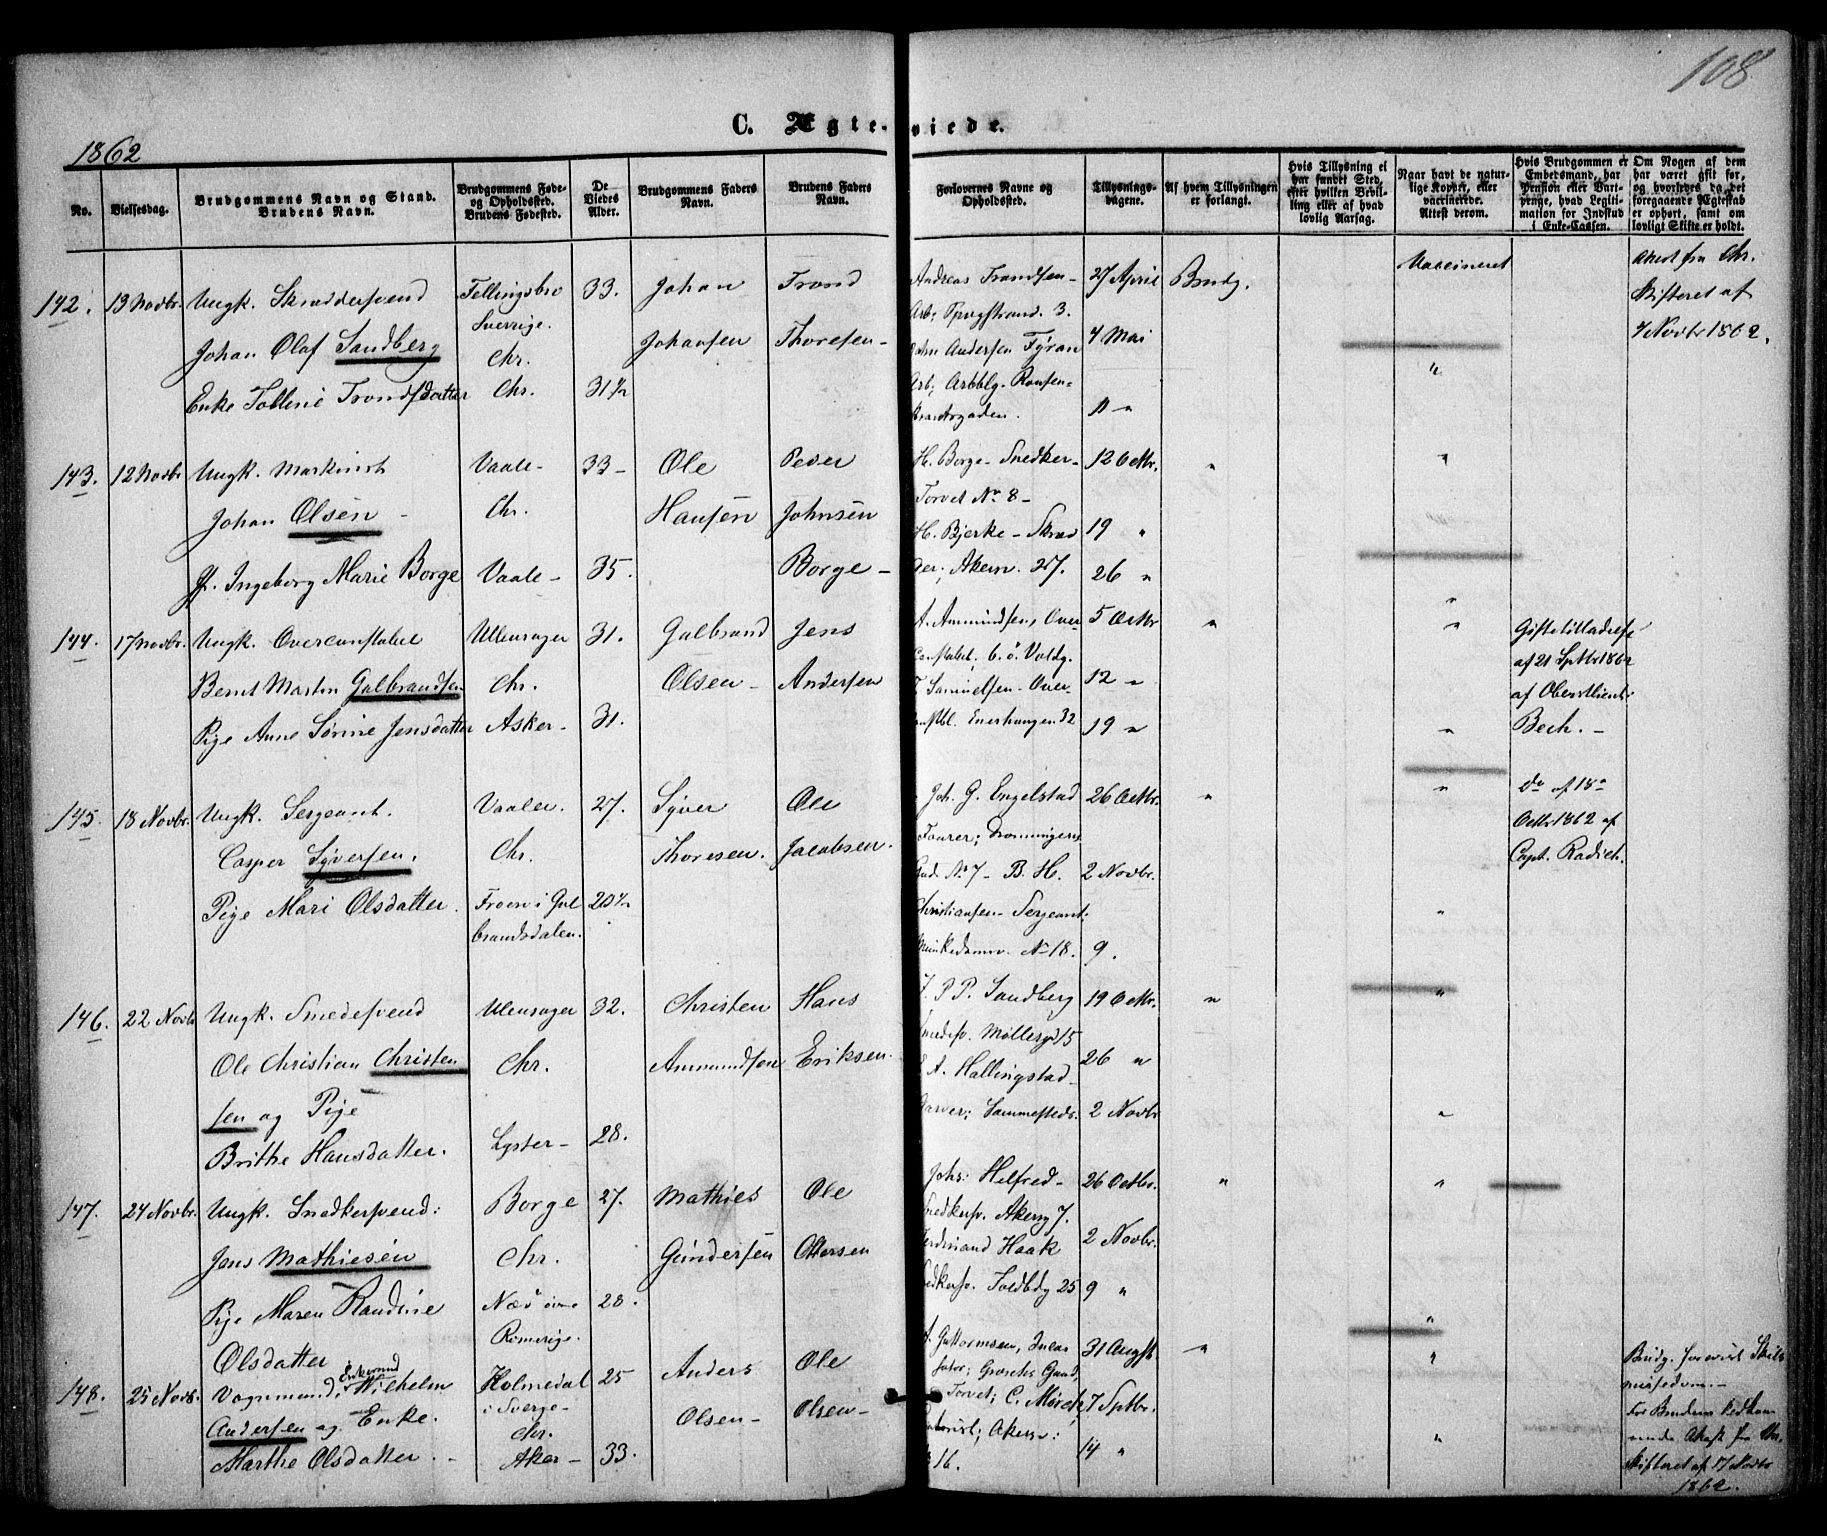 108
C. Ægteviede.
1862
No.
Vielsesdag.
Brudgommens Navn og Stand.
Brudens Navn.
Brudgommens Føde-
og Opholdssted.
Brudens Fødested.
De
Viedes
Alder.
Brudgommens Faders
Navn.
Brudens Faders
Navn.
Forlovernes Navne og
Opholdssted.
Tillysnings-
dagene.
Af hvem Tillysningen
er forlangt.
Hvis Tillysning ei
har fundet Sted,
efter hvilken Bevil-
ling eller af hvad
lovlig Aarsag.
Naar havt de natur-
lige Kopper, eller
vaccinerede.
Attest derom.
Hvis Brudgommen er
Embedsmand, har
Pension eller Vart-
penge, hvad Legiti-
mation for Indskud
i Enke-Cassen.
Om Nogen af dem
har været gift før,
og hvorledes da det
foregaaende Ægteskab
er ophørt, samt om
lovligt Skifte er holdt.
142. 13 Novbr. Ungk. Skræddersvend Fellingsbro 33. Johan Trond Andreas Trondsen 27 April Brudg. Vaccineret Attest fra Chr.
Sverrige. Arb; 3. Skifteret af
Johan Olaf Sandberg Chr. Johansen Thoresen Andersen 4 Mai 4 Novbr 1862.
Enke Tolline Trondsdatter Chr. 31½ Arb; 11 "
143. 12 Novbr Ungk. Maskinist Vaale 33 Ole Peder H. Borge Snedker 12 Octbr. " "
Johan Olsen Chr. Hansen Johnsen Torvet No 8
H. Bjerke 19 "
Ingeborg Marie Borge Vaale 35. Borge Akersv. 27. 26 "
144. 17 Novbr. Ungk. Overconstabel Ullensager 31. Gulbrand Jens A. Ammundsen, Over 5 Octbr " " Giftetilladelse
constabel; Voldg. af 21 Sptbr 1862
Bernt Martin Gulbrandsen Chr. Olsen Andersen Samuelsen Over 12 " af Oberstlieut:
Pige Anne Sørine Jensdatter Asker 31. Enerhaugen 32 19 " " Bech.
145. 18 Novbr. Ungk. Sergeant. Vaaler. 27. Syver Ole Joh. G. Engelstad 26 Octbr. " " do af 18
Fourer; Dronningens Octbr 1862 af
Casper Syversen. Chr. Thoresen. Jacobsen. Gad. No 7 B. H. 2 Novbr. Capt. Radich.
Pige Mari Olsdatter. Froen i Gul 20½ Christiansen Sergeant. "
brandsdalen. Munkedamsv. No 18. 9.
146. 22 Novbr Ungk. Smedesvend Ulensager 32. Christen Hans P. P. Sandberg 19 Octbr. " "
Smedesv. Møllergd 15
Ole Christian Christen Chr. Ammundsen Eriksen. A. Hallingstad 26 "
sen og Pige Garver; Sammesteds. 2 Novbr "
Brithe Hansdatter. Lyster 28.
147. 24 Novbr. Ungk. Snedkersvend: Borge 27. Mathies Ole Johs: Helfred 26 Octbr. " "
Snedkersv. Akersg 7.
Jens Mathiesen Chr. Gundersen Ottersen Ferdinand Haak 2 Novbr.
Pige Maren Randine Næs øvre 28. Snedkersv. 25 9 "
Olsdatter Romerige. "
148. 25 Novb. Vognmand, Enkemand Wilhelm Holmedal 25 Anders Ole Guttormsen, 31 Augst " " Brudg. forevist Skils
i Sverge Grændsen
Andersen og Enke. Chr. Olsen Olsen Torvet; C. 7 Sptbr. For Bruden
Marthe Olsdatter. Aker 33. 16. 14 " " Attest fra Chr.
Skifteret af 17 Novbr
1862.